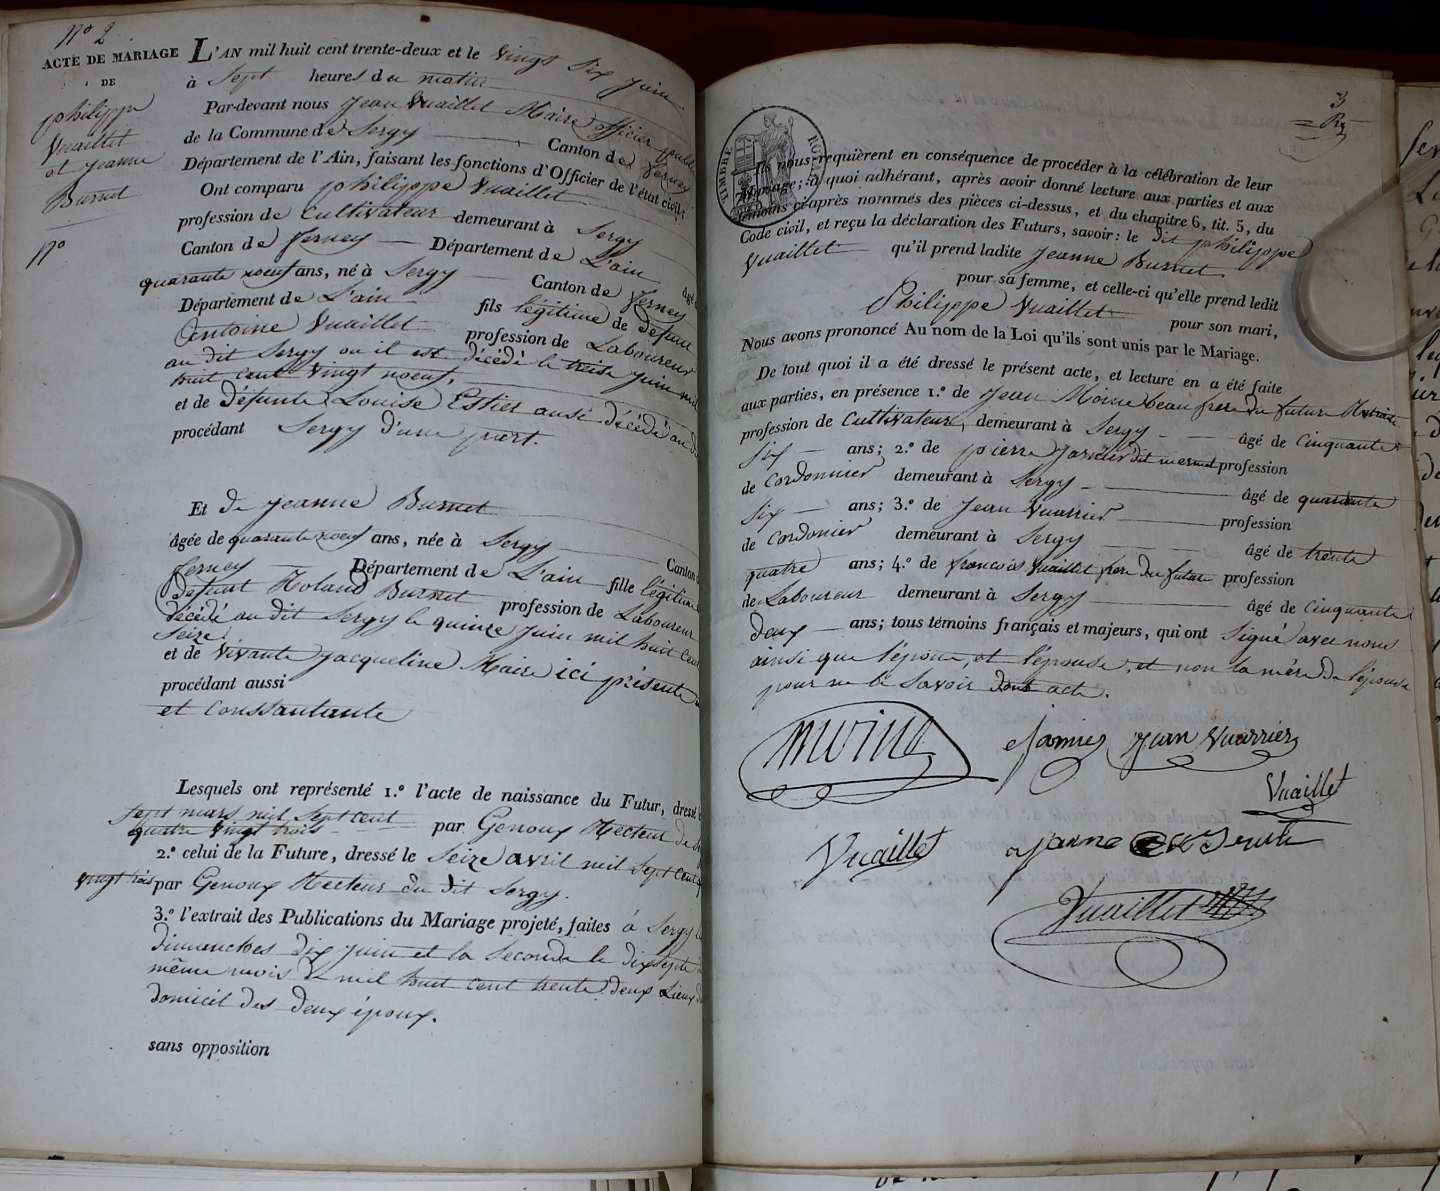 N° 2
ACTE DE MARIAGE
DE
philippe
Vuaillet
et jeanne
Burnet
N°
L'AN mil huit cent trente-deux et le vingt six juin
à Sept heures du matin
Par-devant nous jean Vuaillet Maire officier public
de la Commune de Sergy Canton de Ferney
Département de l'Ain, faisant les fonctions d'Officier de l'état civil;
Ont comparu philippe Vuaillet
profession de Cultivateur demeurant à Sergy
Canton de Ferney — Département de L'ain âgé
quarante noeuf ans, né à Sergy Canton de Ferney
Département de L'ain fils légitime de défunt
Antoine Vuaillet profession de Laboureur
au dit Sergy ou il est décédé le treize juin mil
huit cent vingt noeuf,
et de défunte Louise Estier aussi décédé au d
procédant Sergy d'une part.
Et de jeanne Burnet
âgée de quarante noeuf ans, née à Sergy Canton
Ferney Département de L'ain fille légitime
Defunt Roland Burnet profession de Laboureur
décédé au dit Sergy le quinze juin mil huit cent
seize
et de vivante jacqueline Maire ici présente
procédant aussi
et Constantante
Lesquels ont représenté 1.° l'acte de naissance du Futur, dressé
Sept mars mil Sept cent
quatre vingt trois par Genoux Recteur de
2.° celui de la Future, dressé le Seize avril mil Sept Cent
vingt trois par Genoux Recteur du dit Sergy.
3.° l'extrait des Publications du Mariage projeté, faites à Sergy
dimanches dix juin et la Seconde le dix sept
même mois de mil huit cent trente deux Lieux d
domicil des deux époux.
sans opposition
3
TIMBRE ROYAL
Ils nous requièrent en conséquence de procéder à la célébration de leur
Mariage; à quoi adhérant, après avoir donné lecture aux parties et aux
témoins ci-après nommés des pièces ci-dessus, et du chapitre 6, tit. 5, du
Code civil, et reçu la déclaration des Futurs, savoir: le dit philippe
Vuaillet qu'il prend ladite Jeanne Burnet
pour sa femme, et celle-ci qu'elle prend ledit
Philippe Vuaillet pour son mari,
Nous avons prononcé Au nom de la Loi qu'ils sont unis par le Mariage.
De tout quoi il a été dressé le présent acte, et lecture en a été faite
aux parties, en présence 1.° de Jean Moine beau frere du futur
profession de Cultivateur, demeurant à Sergy âgé de Cinquante
Six ans; 2.° de pierre dit profession
de Cordonnier demeurant à Sergy âgé de quarante
six ans; 3.° de Jean Vuarrier profession
de Cordonier demeurant à Sergy âgé de trente
quatre ans; 4.° de francois Vuaillet frere du futur profession
de Laboureur demeurant à Sergy âgé de Cinquante
deux ans; tous témoins français et majeurs, qui ont Signé avec nous
ainsi que l'époux, et l'épouse, et non la mère de l'épouse
pour ne le Savoir dont acte.
Jean Vuarrier
Vuaillet
Vuaillet
Vuaillet